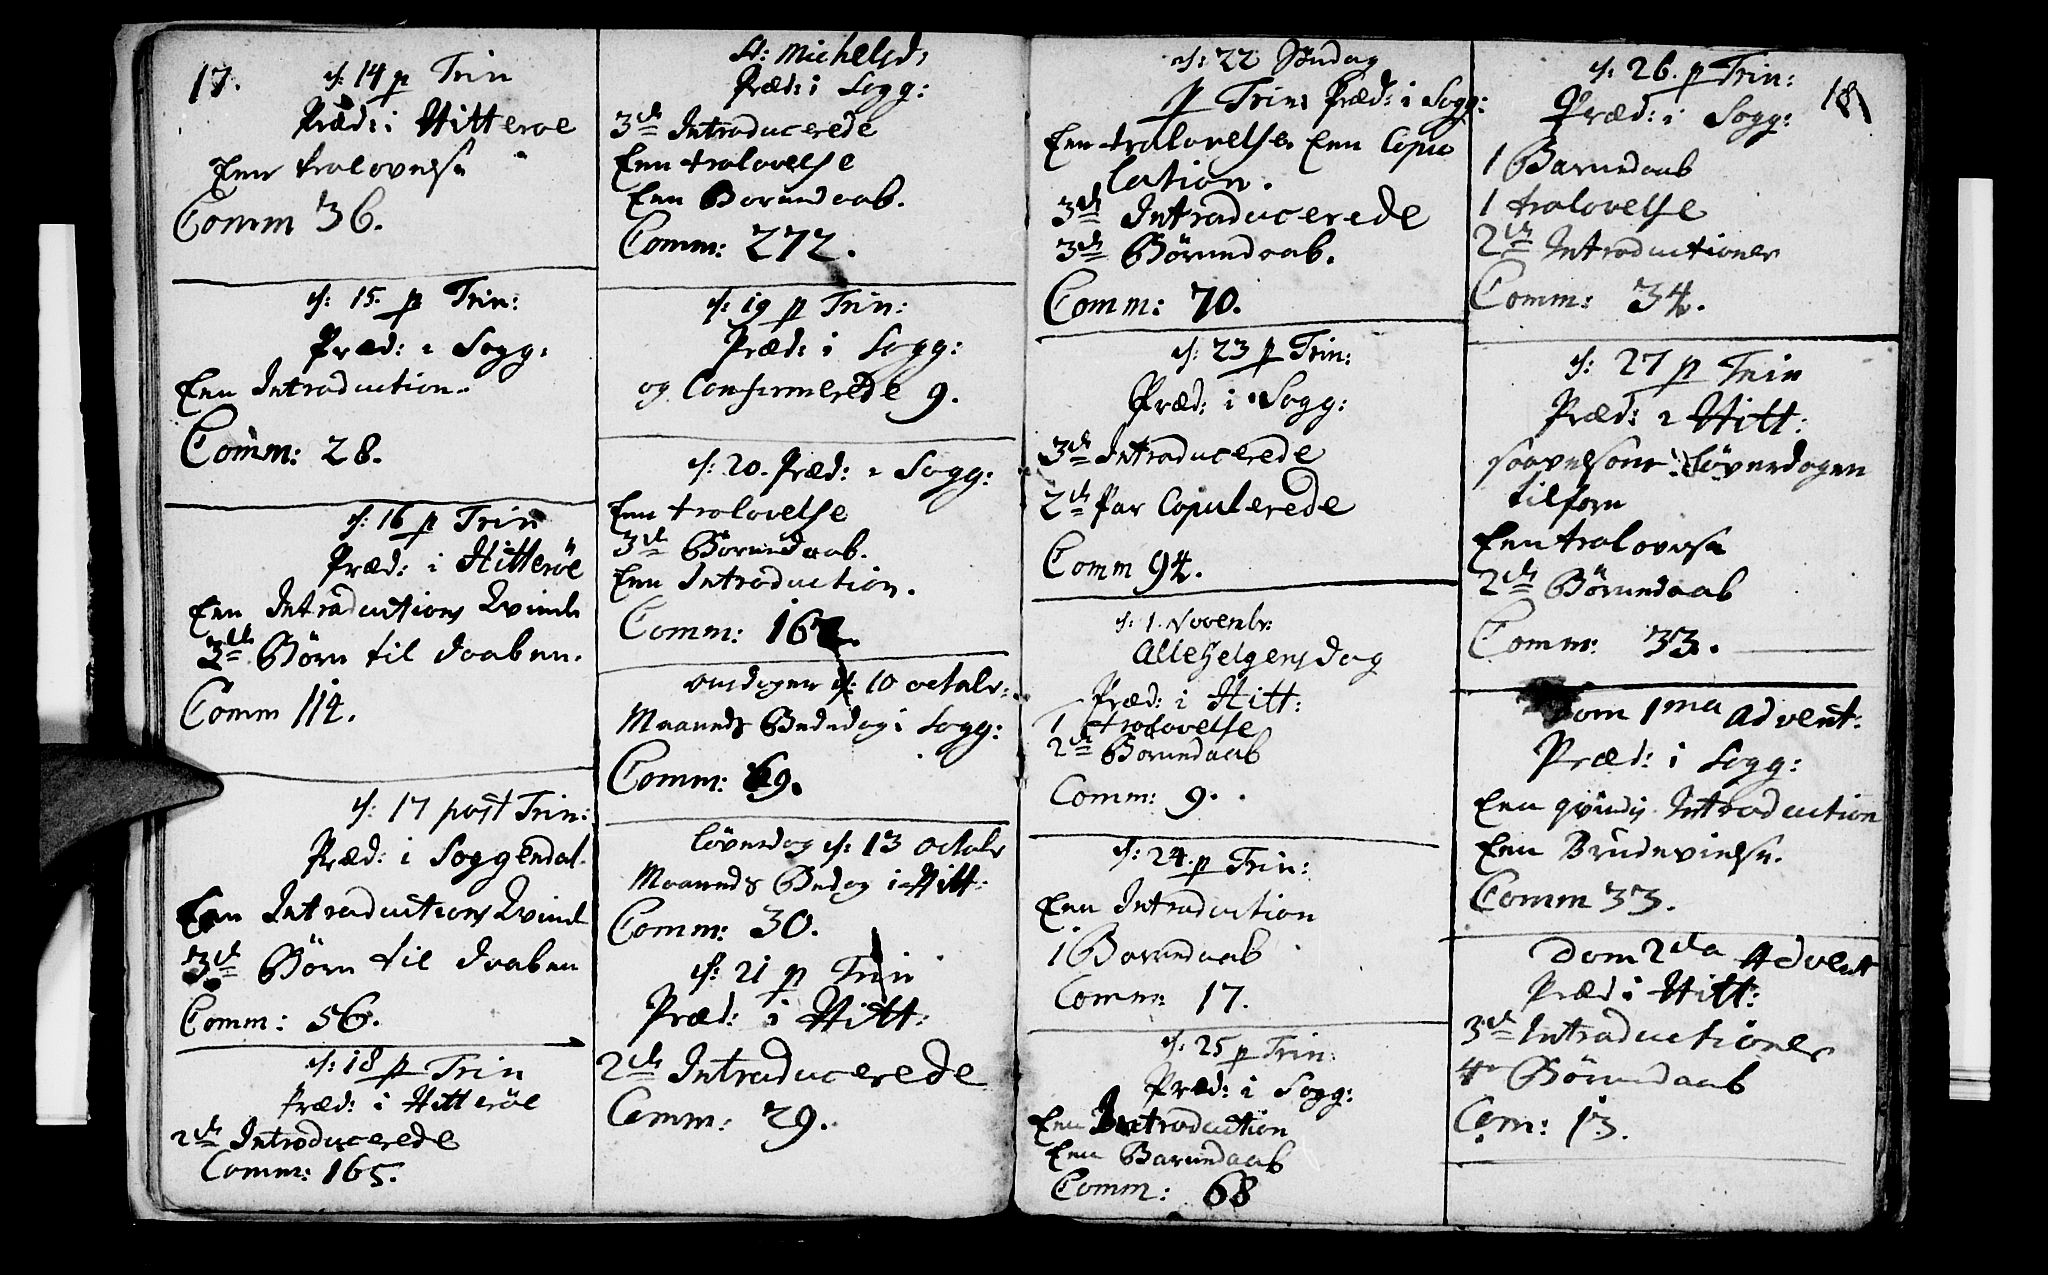 17.
d: 14 p Trin
Præd: i Hitteroe
Een trolovelse
Comm 36.
d: 15. p Trin:
Præd: i Sogg:
Een Introduction.
Comm: 28.
d: 16 p Trin
Præd: i Hitterøe
Een Introductions Qvinde
3de Børn til daaben.
Comm 114.
d: 17 post Trin:
Præd: i Soggendal.
Een Introductions Qvinde
3de Børn til daaben
Comm: 56.
d: 18 p Trin
Præd: i Hitterøe
2de Introducerede
Comm: 165.
St: Michelsd:
Præd: i Sogg:
3de Introducerede
Een trolovelse
Een Barnedaab.
Comm: 272.
d: 19 p Trin:
Præd: i Sogg:
og Confirmerede 9.
d: 20. Præd: i Sogg:
Een trolovelse
3de Børnedaab.
Een Introduction.
Comm:
onsdagen d: 10 octobr:
Maaneds Bededag i Sogg:
Comm: 69.
Løverdag d: 13 octobr
Maaneds Bedag i Hitt:
Comm: 30.
d: 21 p Trin
Præd: i Hitt:
2de Introducerede
Comm: 29.
d: 22 Søndag
p Trin: Præd: i Sogg:
Een trolovelse. Een Copu
lation.
3de Introducerede
3de Børnedaab.
Comm: 70.
d: 23 p Trin:
Præd: i Sogg:
3de Introducerede
2de Par Copulerede
Comm 94.
d: 1. Novembr:
AlleHelgensdag
Præd: i Hitt:
1 trolovelse
2de Børnedaab
Comm: 9.
d: 24. p Trin:
Een Introduction
1 Barnedaab
Comm: 17.
d: 25 p Trin:
Præd: i Sogg:
Een Introduction
Een Barnedaab
Comm: 68
18
d: 26. p Trin:
Præd: i Sogg:
1 Barnedaab
1 trolovelse
2de Introductioner
Comm: 34.
d: 27 p Trin
Præd: i Hitt:
saavelsom Løverdagen
tilforn
Een trolovelse
2de Børnedaab
Comm: 33.
Dom 1ma Advent:
Præd: i Sogg:
Een qvindes Introduction
Een Brudevielse.
Comm 33.
Dom 2da Advent
Præd i Hitt:
3de Introductioner
4re Børnedaab
Com: 13.